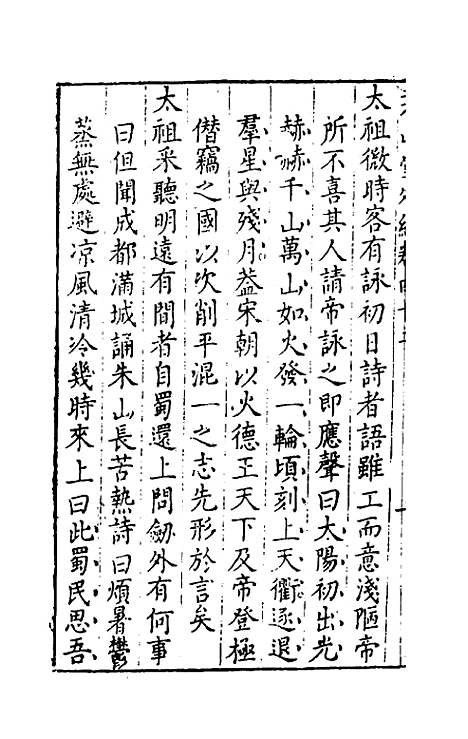 太祖微時客有詠初日詩者語雖工而意淺陋帝
所不喜其人請帝詠之即應聲曰太陽初出光
赫赫千山萬山如火發一輪頃刻上天衢逐退
羣星與殘月葢宋朝以火德王天下及帝登極
僣竊之國以次削平混一之志先形於言矣
太祖采聽明遠有間者自蜀還上問劒外有何事
曰但聞成都滿城誦朱山長苦熱詩曰煩暑鬱
蒸無處避凉風清冷幾時來上曰此蜀民思吾